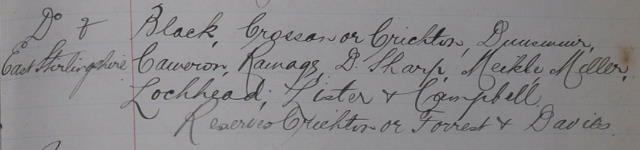 Do v Black, Crossan or Crichton, Dunsmuir,
East Stirlingshire Cameron, Ramage, D. Sharp, Meikle, Miller,
Lochhead, Lister & Campbell
Reserves Crichton or Forrest & Davies